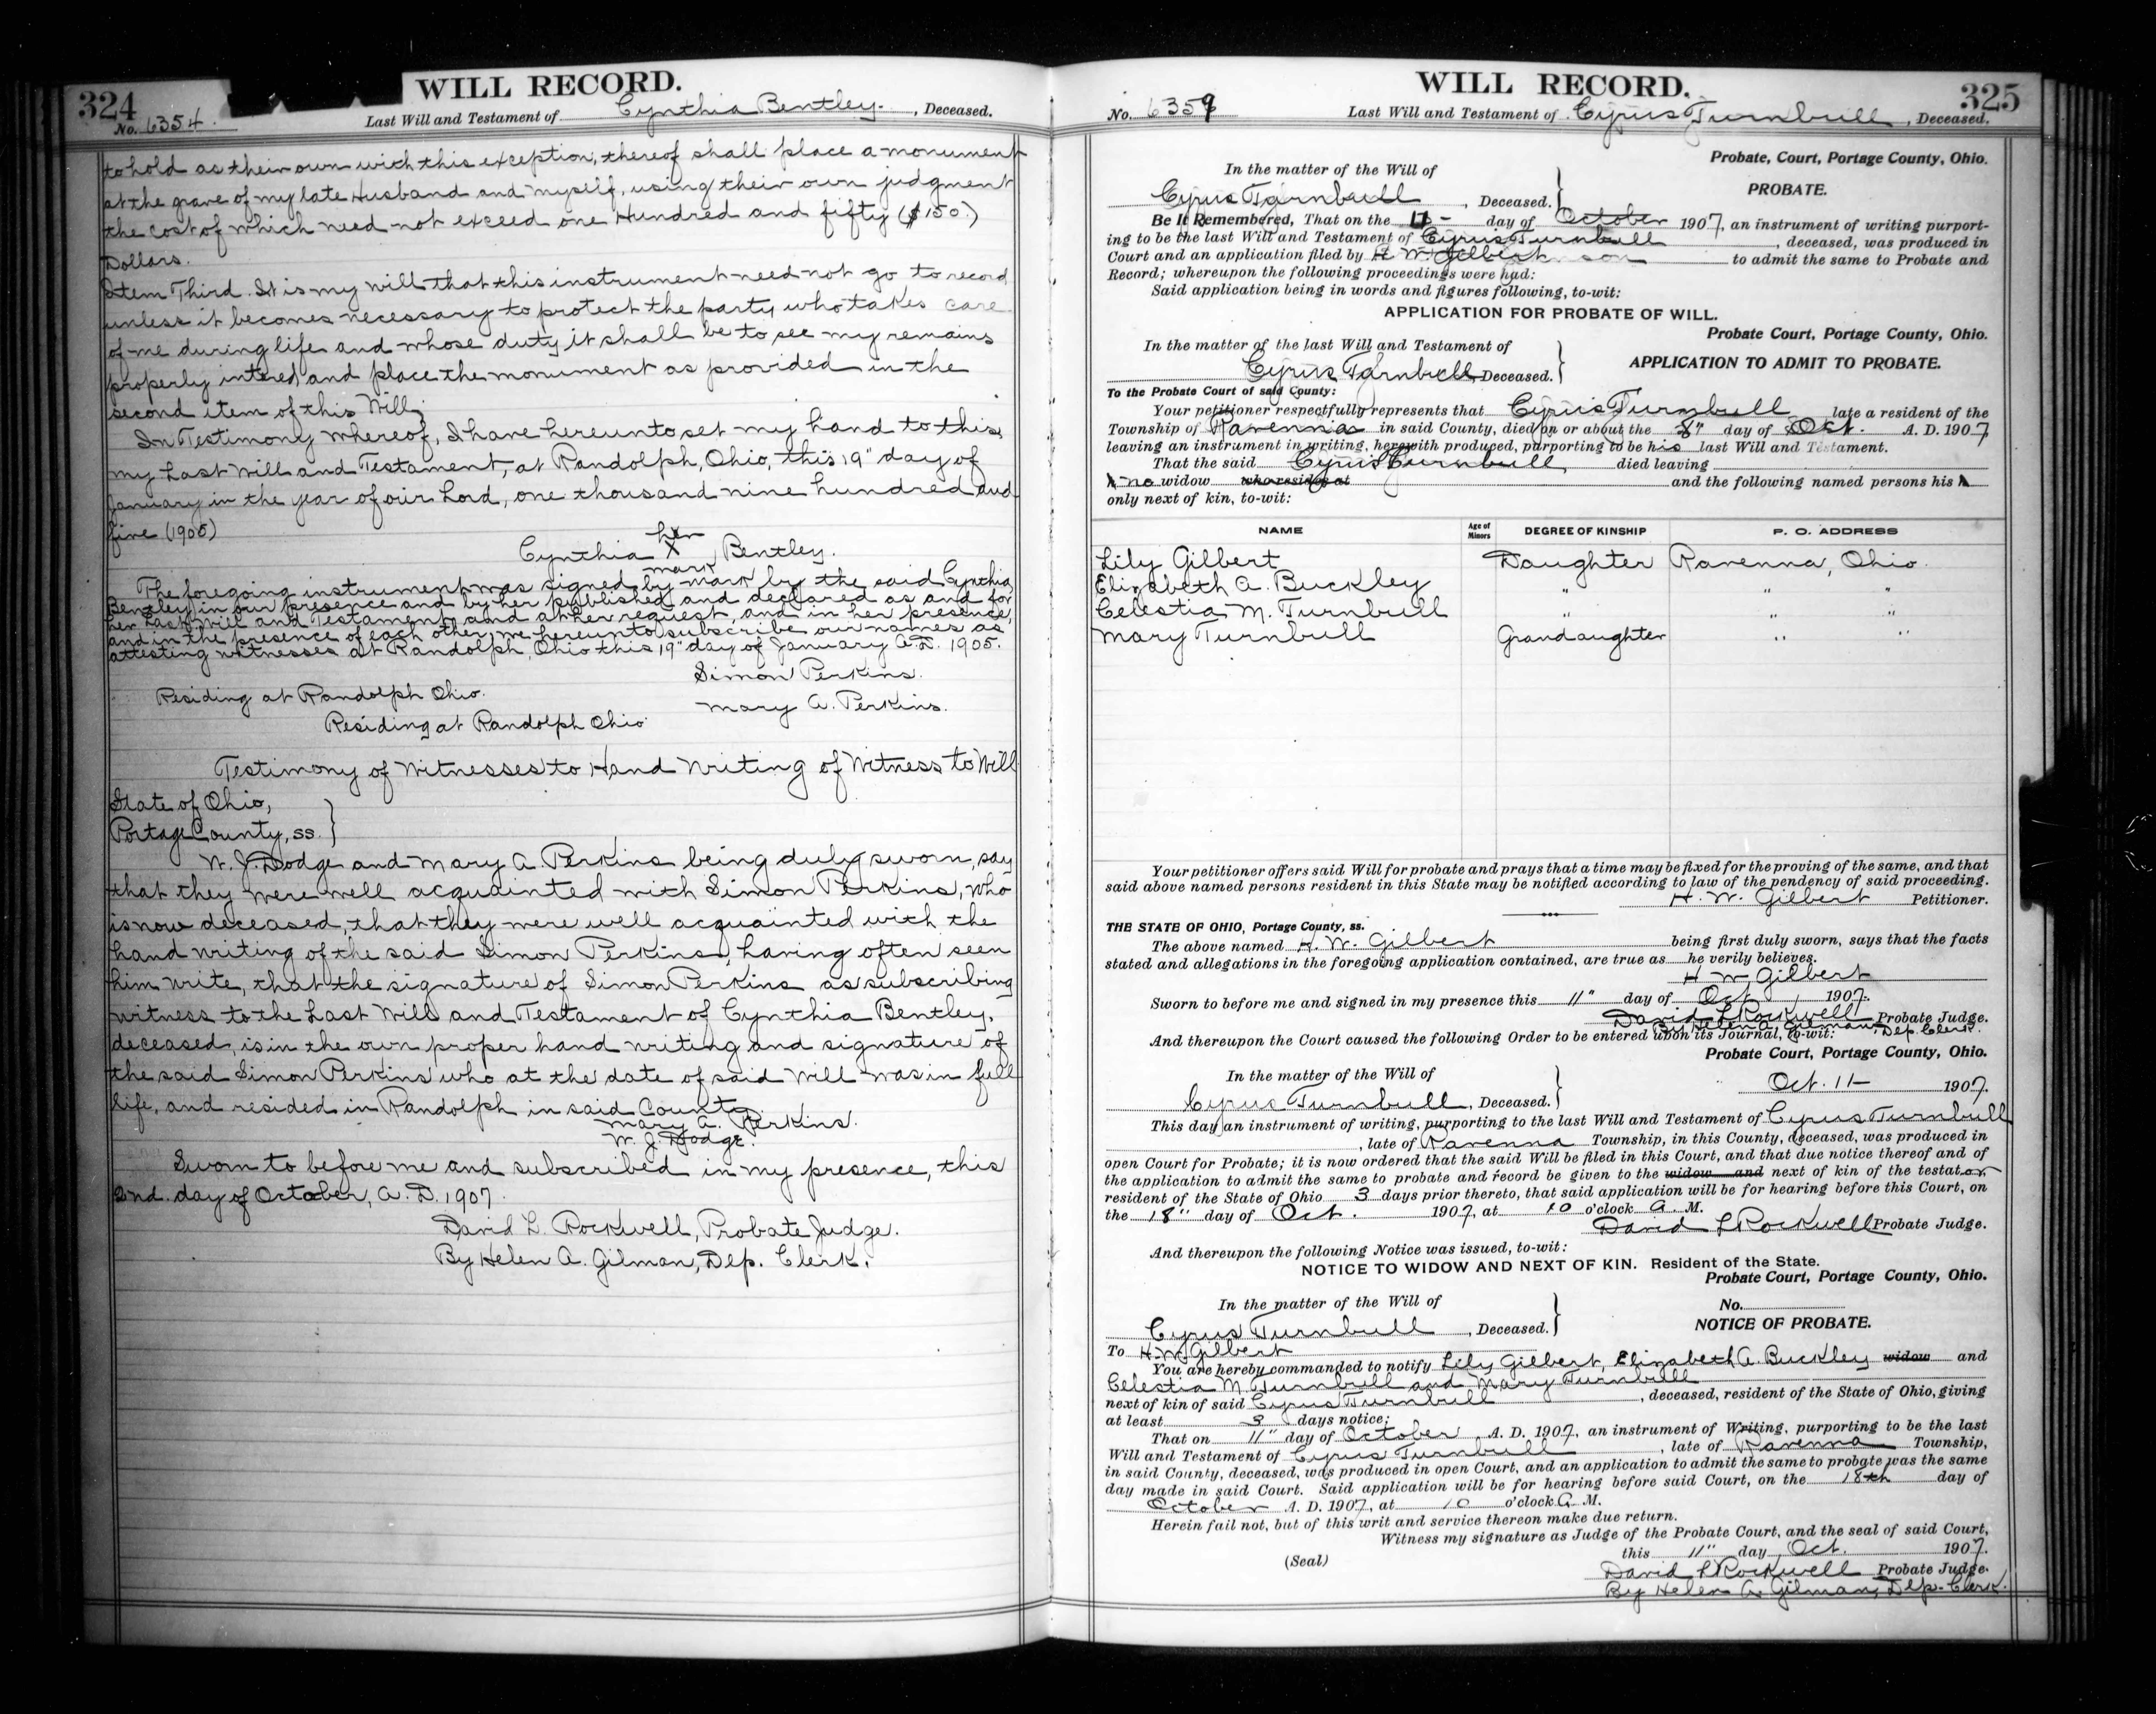 324
WILL RECORD.
No. 6354.
Last Will and Testament of Cynthia Bentley. , Deceased.
to hold as their own with this exception, thereof shall place a monument
at the grave of my late Husband and myself, using their own judgment
the cost of which need not exceed one Hundred and fifty ($150.)
Dollars.
Item Third. It is my will that this instrument need not go to record
unless it becomes necessary to protect the party who takes care
of me during life and whose duty it shall be to see my remains
properly intered and place the monument as provided in the
second item of this Will.
In Testimony whereof, I have hereunto set my hand to this,
my Last Will and Testament, at Randolph, Ohio, this 19" day of
January in the year of our Lord, one thousand nine hundred and
five (1905)
her
Cynthia X Bentley.
mark
The foregoing instrument was signed by mark by the said Cynthia
Bentley in our presence and by her published and declared as and for
her Last Will and Testament, and at her request, and in her presence,
and in the presence of each other, we hereunto subscribe our names as
attesting witnesses at Randolph, Ohio this 19" day of January A.D. 1905.
Simon Perkins.
Residing at Randolph Ohio.
Mary A. Perkins.
Residing at Randolph Ohio
Testimony of Witnesses to Hand Writing of Witness to Will
State of Ohio, }
Portage County, ss. }
W. J. Dodge and Mary A. Perkins being duly sworn, say
that they were well acquainted with Simon Perkins, who
is now deceased, that they were well acquainted with the
hand writing of the said Simon Perkins, having often seen
him write, that the signature of Simon Perkins as subscribing
witness to the Last Will and Testament of Cynthia Bentley,
deceased, is in the own proper hand writing and signature of
the said Simon Perkins who at the date of said Will was in full
life, and resided in Randolph in said County
Mary A. Perkins.
W. J. Dodge.
Sworn to before me and subscribed in my presence, this
2nd. day of October, A. D. 1907.
David L. Rockwell, Probate Judge.
By Helen A. Gilman, Dep. Clerk.
WILL RECORD.
325
No. 6359
Last Will and Testament of Cyrus Turnbull , Deceased.
Probate, Court, Portage County, Ohio.
In the matter of the Will of
PROBATE.
Cyrus Turnbull , Deceased. }
Be It Remembered, That on the 11 - day of October 1907, an instrument of writing purport-
ing to be the last Will and Testament of Cyrus Turnbull , deceased, was produced in
Court and an application filed by H. W. Gilbert to admit the same to Probate and
Record; whereupon the following proceedings were had:
Said application being in words and figures following, to-wit:
APPLICATION FOR PROBATE OF WILL.
Probate Court, Portage County, Ohio.
In the matter of the last Will and Testament of
Cyrus Turnbull Deceased. }
APPLICATION TO ADMIT TO PROBATE.
To the Probate Court of said County:
Your petitioner respectfully represents that Cyrus Turnbull late a resident of the
Township of Ravenna in said County, died on or about the 8" day of Oct. A. D. 1907
leaving an instrument in writing, herewith produced, parporting to be his last Will and Testament.
That the said Cyrus Turnbull died leaving
no widow who resides at and the following named persons his
only next of kin, to-wit:
NAME Age of Minors DEGREE OF KINSHIP P. O. ADDRESS
Lily Gilbert Daughter Ravenna, Ohio.
Elizabeth A. Buckley " " "
Celestia M. Turnbull " " "
Mary Turnbull Grandaughter " "
Your petitioner offers said Will for probate and prays that a time may be fixed for the proving of the same, and that
said above named persons resident in this State may be notified according to law of the pendency of said proceeding.
H. W. Gilbert Petitioner.
THE STATE OF OHIO, Portage County, ss.
The above named H. W. Gilbert being first duly sworn, says that the facts
stated and allegations in the foregoing application contained, are true as he verily believes.
H W Gilbert
Sworn to before me and signed in my presence this 11" day of Oct 1907.
David L Rockwell Probate Judge.
By Helen A. Gilman, Dep. Clerk.
And thereupon the Court caused the following Order to be entered upon its Journal, to-wit:
Probate Court, Portage County, Ohio.
In the matter of the Will of
Oct. 11- 1907.
Cyrus Turnbull , Deceased. }
This day an instrument of writing, purporting to the last Will and Testament of Cyrus Turnbull
, late of Ravenna Township, in this County, deceased, was produced in
open Court for Probate; it is now ordered that the said Will be filed in this Court, and that due notice thereof and of
the application to admit the same to probate and record be given to the widow and next of kin of the testator
resident of the State of Ohio 3 days prior thereto, that said application will be for hearing before this Court, on
the 18" day of Oct. 1907, at 10 o'clock A. M.
David L Rockwell Probate Judge.
And thereupon the following Notice was issued, to-wit:
NOTICE TO WIDOW AND NEXT OF KIN. Resident of the State.
Probate Court, Portage County, Ohio.
In the matter of the Will of
No.
Cyrus Turnbull , Deceased. }
NOTICE OF PROBATE.
To H. W. Gilbert
You are hereby commanded to notify Lily Gilbert, Elizabeth A. Buckley widow and
Celestia M. Turnbull and Mary Turnbull
next of kin of said Cyrus Turnbull , deceased, resident of the State of Ohio, giving
at least 3 days notice;
That on 11" day of October A. D. 1907, an instrument of Writing, purporting to be the last
Will and Testament of Cyrus Turnbull , late of Ravenna Township,
in said County, deceased, was produced in open Court, and an application to admit the same to probate was the same
day made in said Court. Said application will be for hearing before said Court, on the 18th day of
October A. D. 1907, at 10 o'clock A. M.
Herein fail not, but of this writ and service thereon make due return.
Witness my signature as Judge of the Probate Court, and the seal of said Court,
(Seal)
this 11" day Oct. 1907.
David L Rockwell Probate Judge.
By Helen A. Gilman, Dep-Clerk.